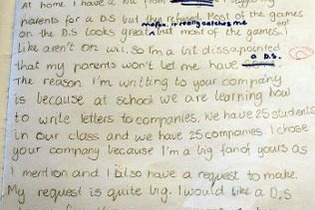 At home I have a Wii from
parents for a DS but they refused. Most of the games
on the DS looks great but most of the games I
like aren't on wii. So I'm a bit dissapointed
that my parents won't let me have a D.S.
The reason I'm writting to your company
is because at school we are learning how
to write letters to companies. We have 25 students
in our class and we have 25 companies. I chose
your company because I'm a big fan of yours as
I mention and I also have a request to make.
My request is quite big. I would like a D.S